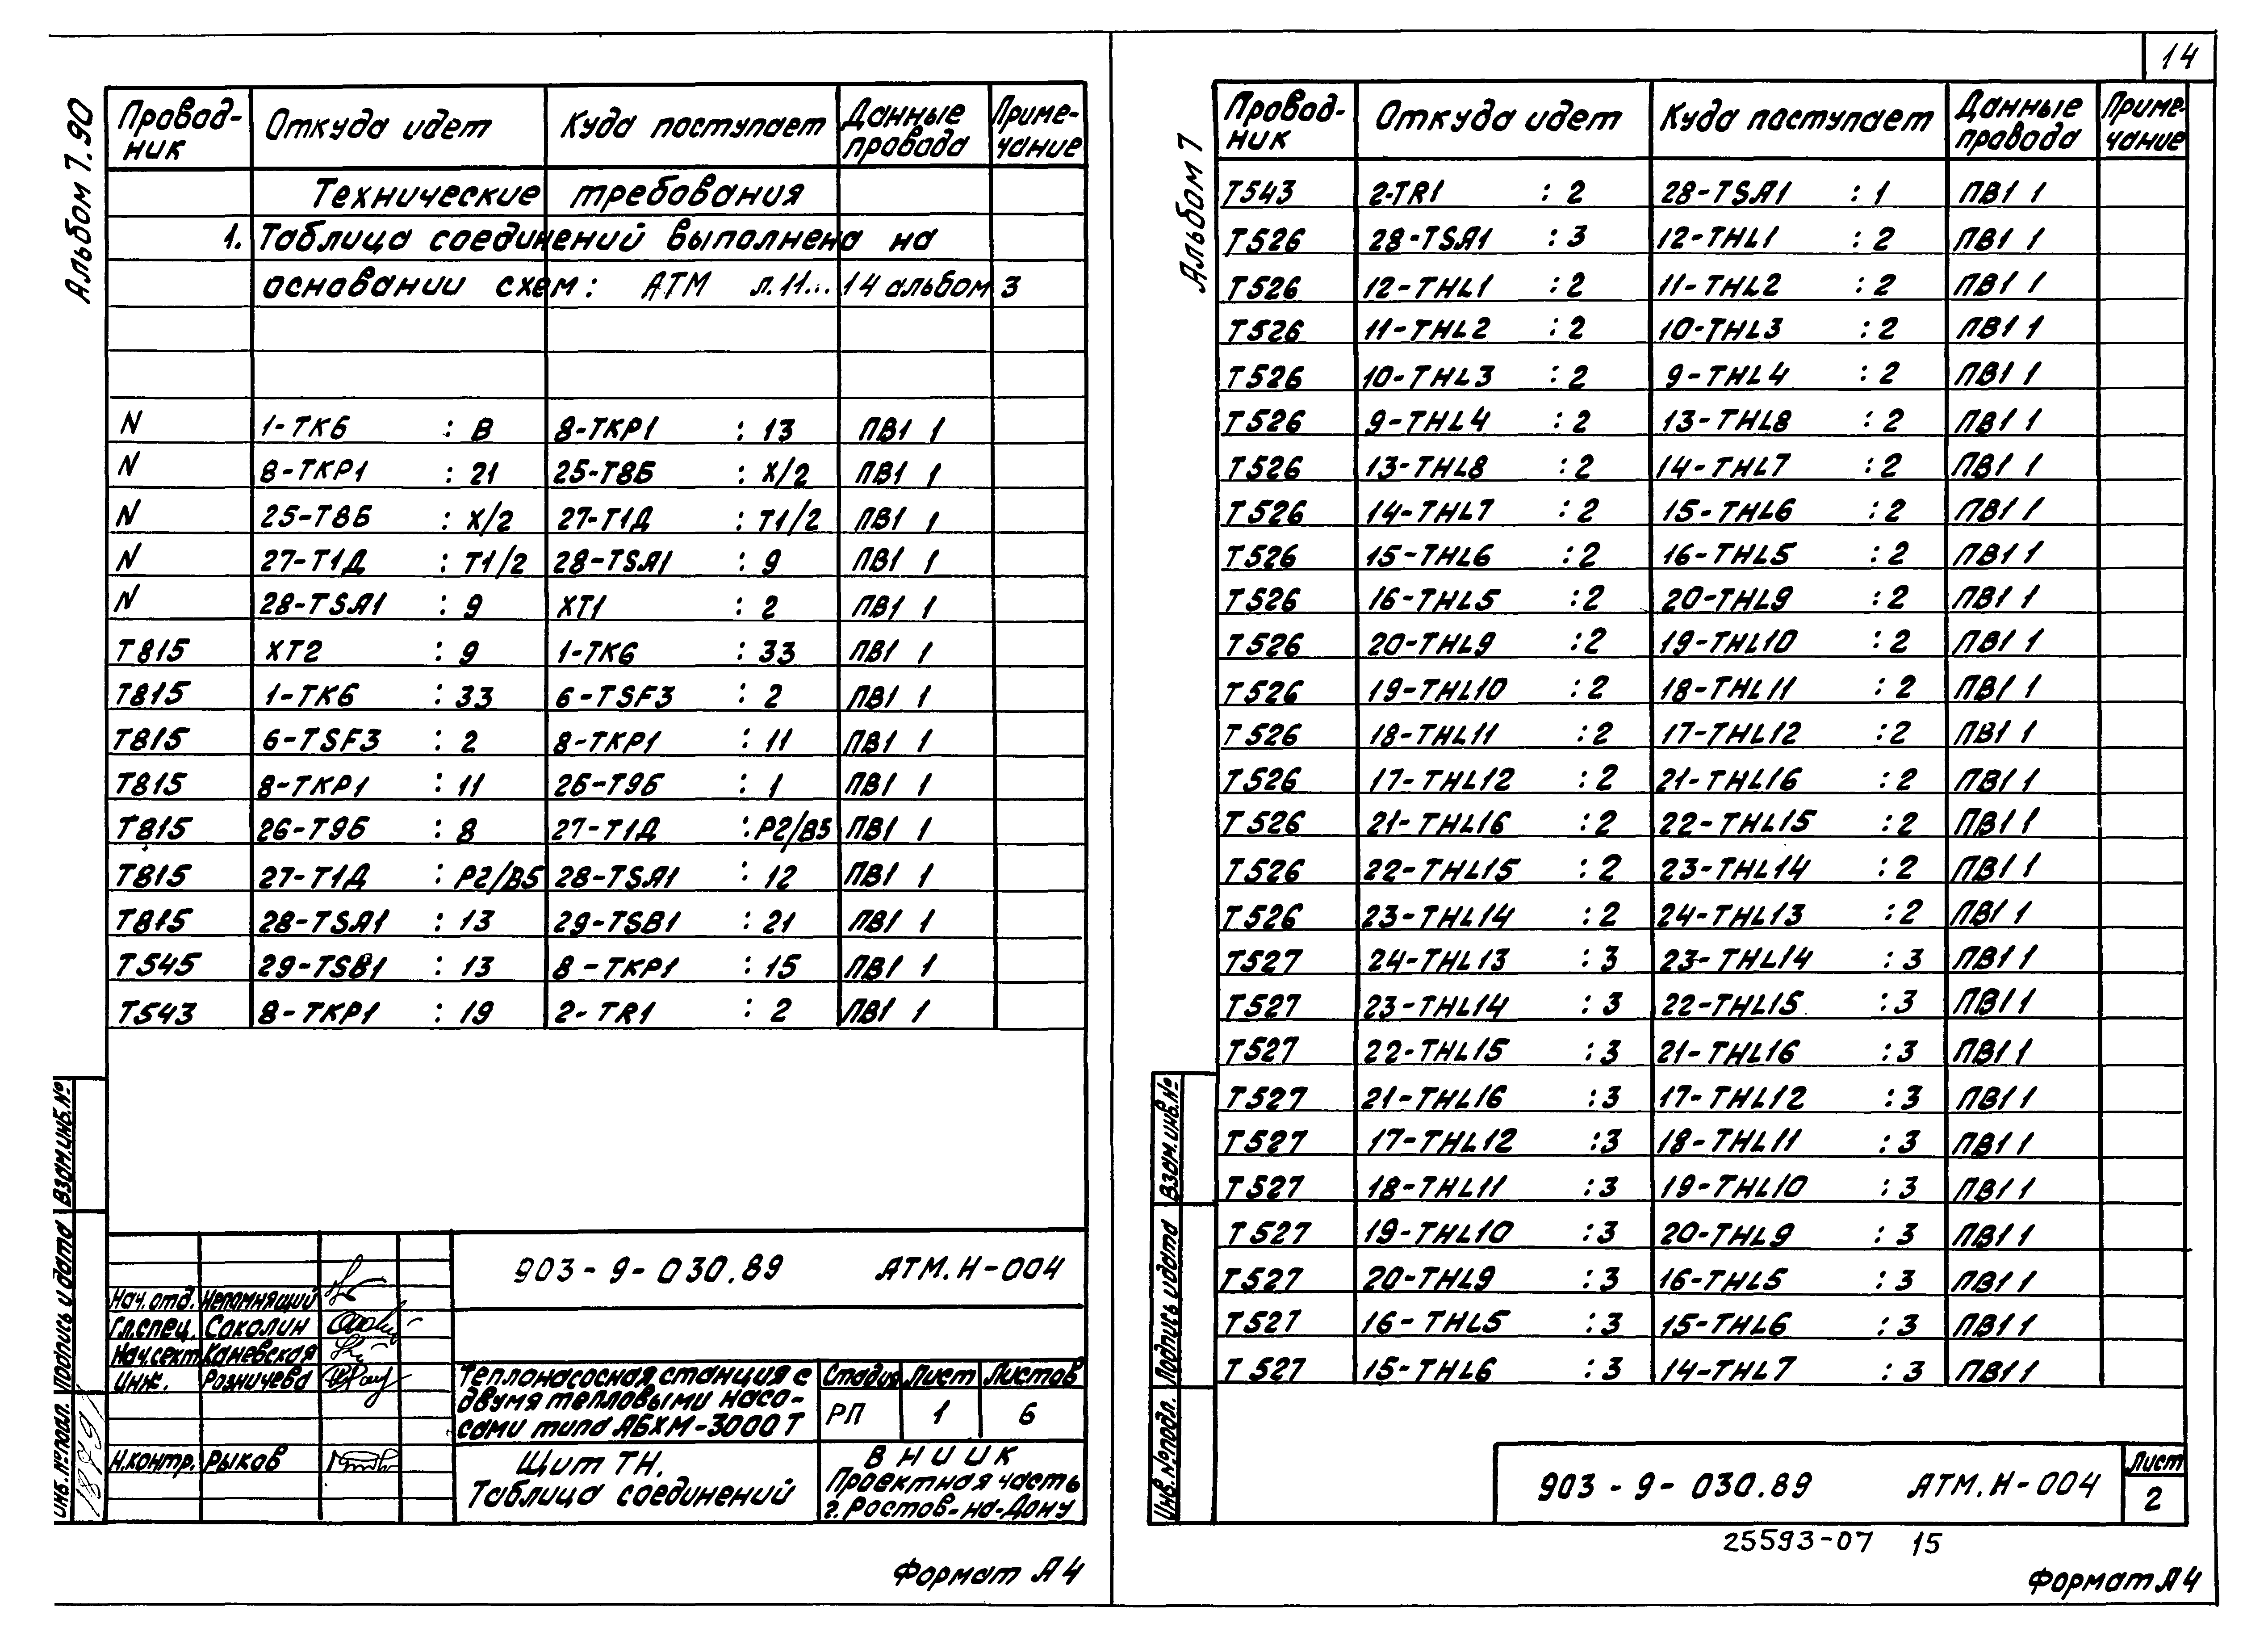 14
Альбом 7.90
Провод-ник Откуда идет Куда поступает Данные провода Приме-чание
Технические требования
1. Таблица соединений выполнена на
основании схем: АТМ л.11...14 альбом 3
N 1-ТК6 : В 8-ТКР1 : 13 ПВ1 1
N 8-ТКР1 : 21 25-Т8Б : Х/2 ПВ1 1
N 25-Т8Б : Х/2 27-Т1Д : Т1/2 ПВ1 1
N 27-Т1Д : Т1/2 28-TSA1 : 9 ПВ1 1
N 28-TSA1 : 9 ХТ1 : 2 ПВ1 1
Т815 ХТ2 : 9 1-ТК6 : 33 ПВ1 1
Т815 1-ТК6 : 33 6-TSF3 : 2 ПВ1 1
Т815 6-TSF3 : 2 8-ТКР1 : 11 ПВ1 1
Т815 8-ТКР1 : 11 26-Т9Б : 1 ПВ1 1
Т815 26-Т9Б : 8 27-Т1Д : Р2/В5 ПВ1 1
Т815 27-Т1Д : Р2/В5 28-TSA1 : 12 ПВ1 1
Т815 28-TSA1 : 13 29-TSB1 : 21 ПВ1 1
Т545 29-TSB1 : 13 8-ТКР1 : 15 ПВ1 1
Т543 8-ТКР1 : 19 2-TR1 : 2 ПВ1 1
Взам.инв.№
Подпись и дата
Инв.№подл.
903-9-030.89 АТМ.Н-004
Нач.отд. Непомнящий
Гл.спец. Соколин
Нач.сект. Каневская
Инж. Разничева
Н.контр. Рыков
Теплонасосная станция с
двумя тепловыми насо-
сами типа АБХМ-3000Т
Стадия Лист Листов
РП 1 6
Щит ТН.
Таблица соединений
ВНИИК
Проектная часть
г.Ростов-на-Дону
Формат А4
Альбом 7
Провод-ник Откуда идет Куда поступает Данные провода Приме-чание
Т543 2-TR1 : 2 28-TSA1 : 1 ПВ1 1
Т526 28-TSA1 : 3 12-THL1 : 2 ПВ1 1
Т526 12-THL1 : 2 11-THL2 : 2 ПВ1 1
Т526 11-THL2 : 2 10-THL3 : 2 ПВ1 1
Т526 10-THL3 : 2 9-THL4 : 2 ПВ1 1
Т526 9-THL4 : 2 13-THL8 : 2 ПВ1 1
Т526 13-THL8 : 2 14-THL7 : 2 ПВ1 1
Т526 14-THL7 : 2 15-THL6 : 2 ПВ1 1
Т526 15-THL6 : 2 16-THL5 : 2 ПВ1 1
Т526 16-THL5 : 2 20-THL9 : 2 ПВ1 1
Т526 20-THL9 : 2 19-THL10 : 2 ПВ1 1
Т526 19-THL10 : 2 18-THL11 : 2 ПВ1 1
Т526 18-THL11 : 2 17-THL12 : 2 ПВ1 1
Т526 17-THL12 : 2 21-THL16 : 2 ПВ1 1
Т526 21-THL16 : 2 22-THL15 : 2 ПВ1 1
Т526 22-THL15 : 2 23-THL14 : 2 ПВ1 1
Т526 23-THL14 : 2 24-THL13 : 2 ПВ1 1
Т527 24-THL13 : 3 23-THL14 : 3 ПВ1 1
Т527 23-THL14 : 3 22-THL15 : 3 ПВ1 1
Т527 22-THL15 : 3 21-THL16 : 3 ПВ1 1
Т527 21-THL16 : 3 17-THL12 : 3 ПВ1 1
Т527 17-THL12 : 3 18-THL11 : 3 ПВ1 1
Т527 18-THL11 : 3 19-THL10 : 3 ПВ1 1
Т527 19-THL10 : 3 20-THL9 : 3 ПВ1 1
Т527 20-THL9 : 3 16-THL5 : 3 ПВ1 1
Т527 16-THL5 : 3 15-THL6 : 3 ПВ1 1
Т527 15-THL6 : 3 14-THL7 : 3 ПВ1 1
Взам.инв.№
Подпись и дата
Инв.№подл.
903-9-030.89 АТМ.Н-004
Лист
2
25593-07 15
Формат А4